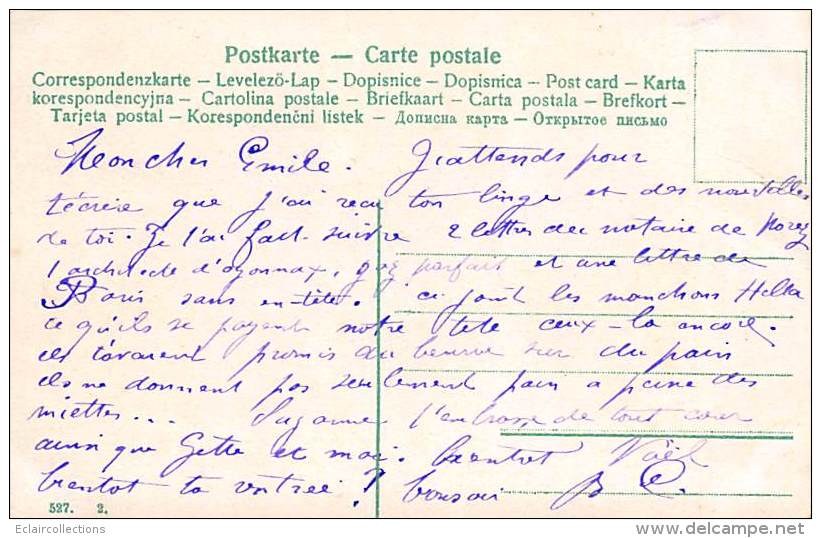 Postkarte — Carte postale
Correspondenzkarte – Levelező-Lap – Dopisnice – Dopisnica – Post card – Karta
korespondencyjna – Cartolina postale – Briefkaart – Carta postala – Brefkort –
Tarjeta postal – Korespondenčni listek – Дописна карта – Открытое письмо
Mon cher Emile. J'attends pour
t'écrire que j'ai reçu ton linge et des nouvelles
de toi. Je t'ai fait suivre 2 lettres du notaire de
d'oyonnax, gaz parfait et une lettre de
Paris sans en-tête. ci joint les manchons Hella
ce qu'ils se payent notre tête ceux-là encore.
ils t'avaient promis du beurre sur du pain
ils ne donnent pas seulement pain a peine des
miettes... Suzanne t'embrasse de tout cœur
ainsi que Gette et moi. bientot Noël
bientot ta rentrée ? bonsoir B E.
527. 2.
Eclaircollections
delcampe.net